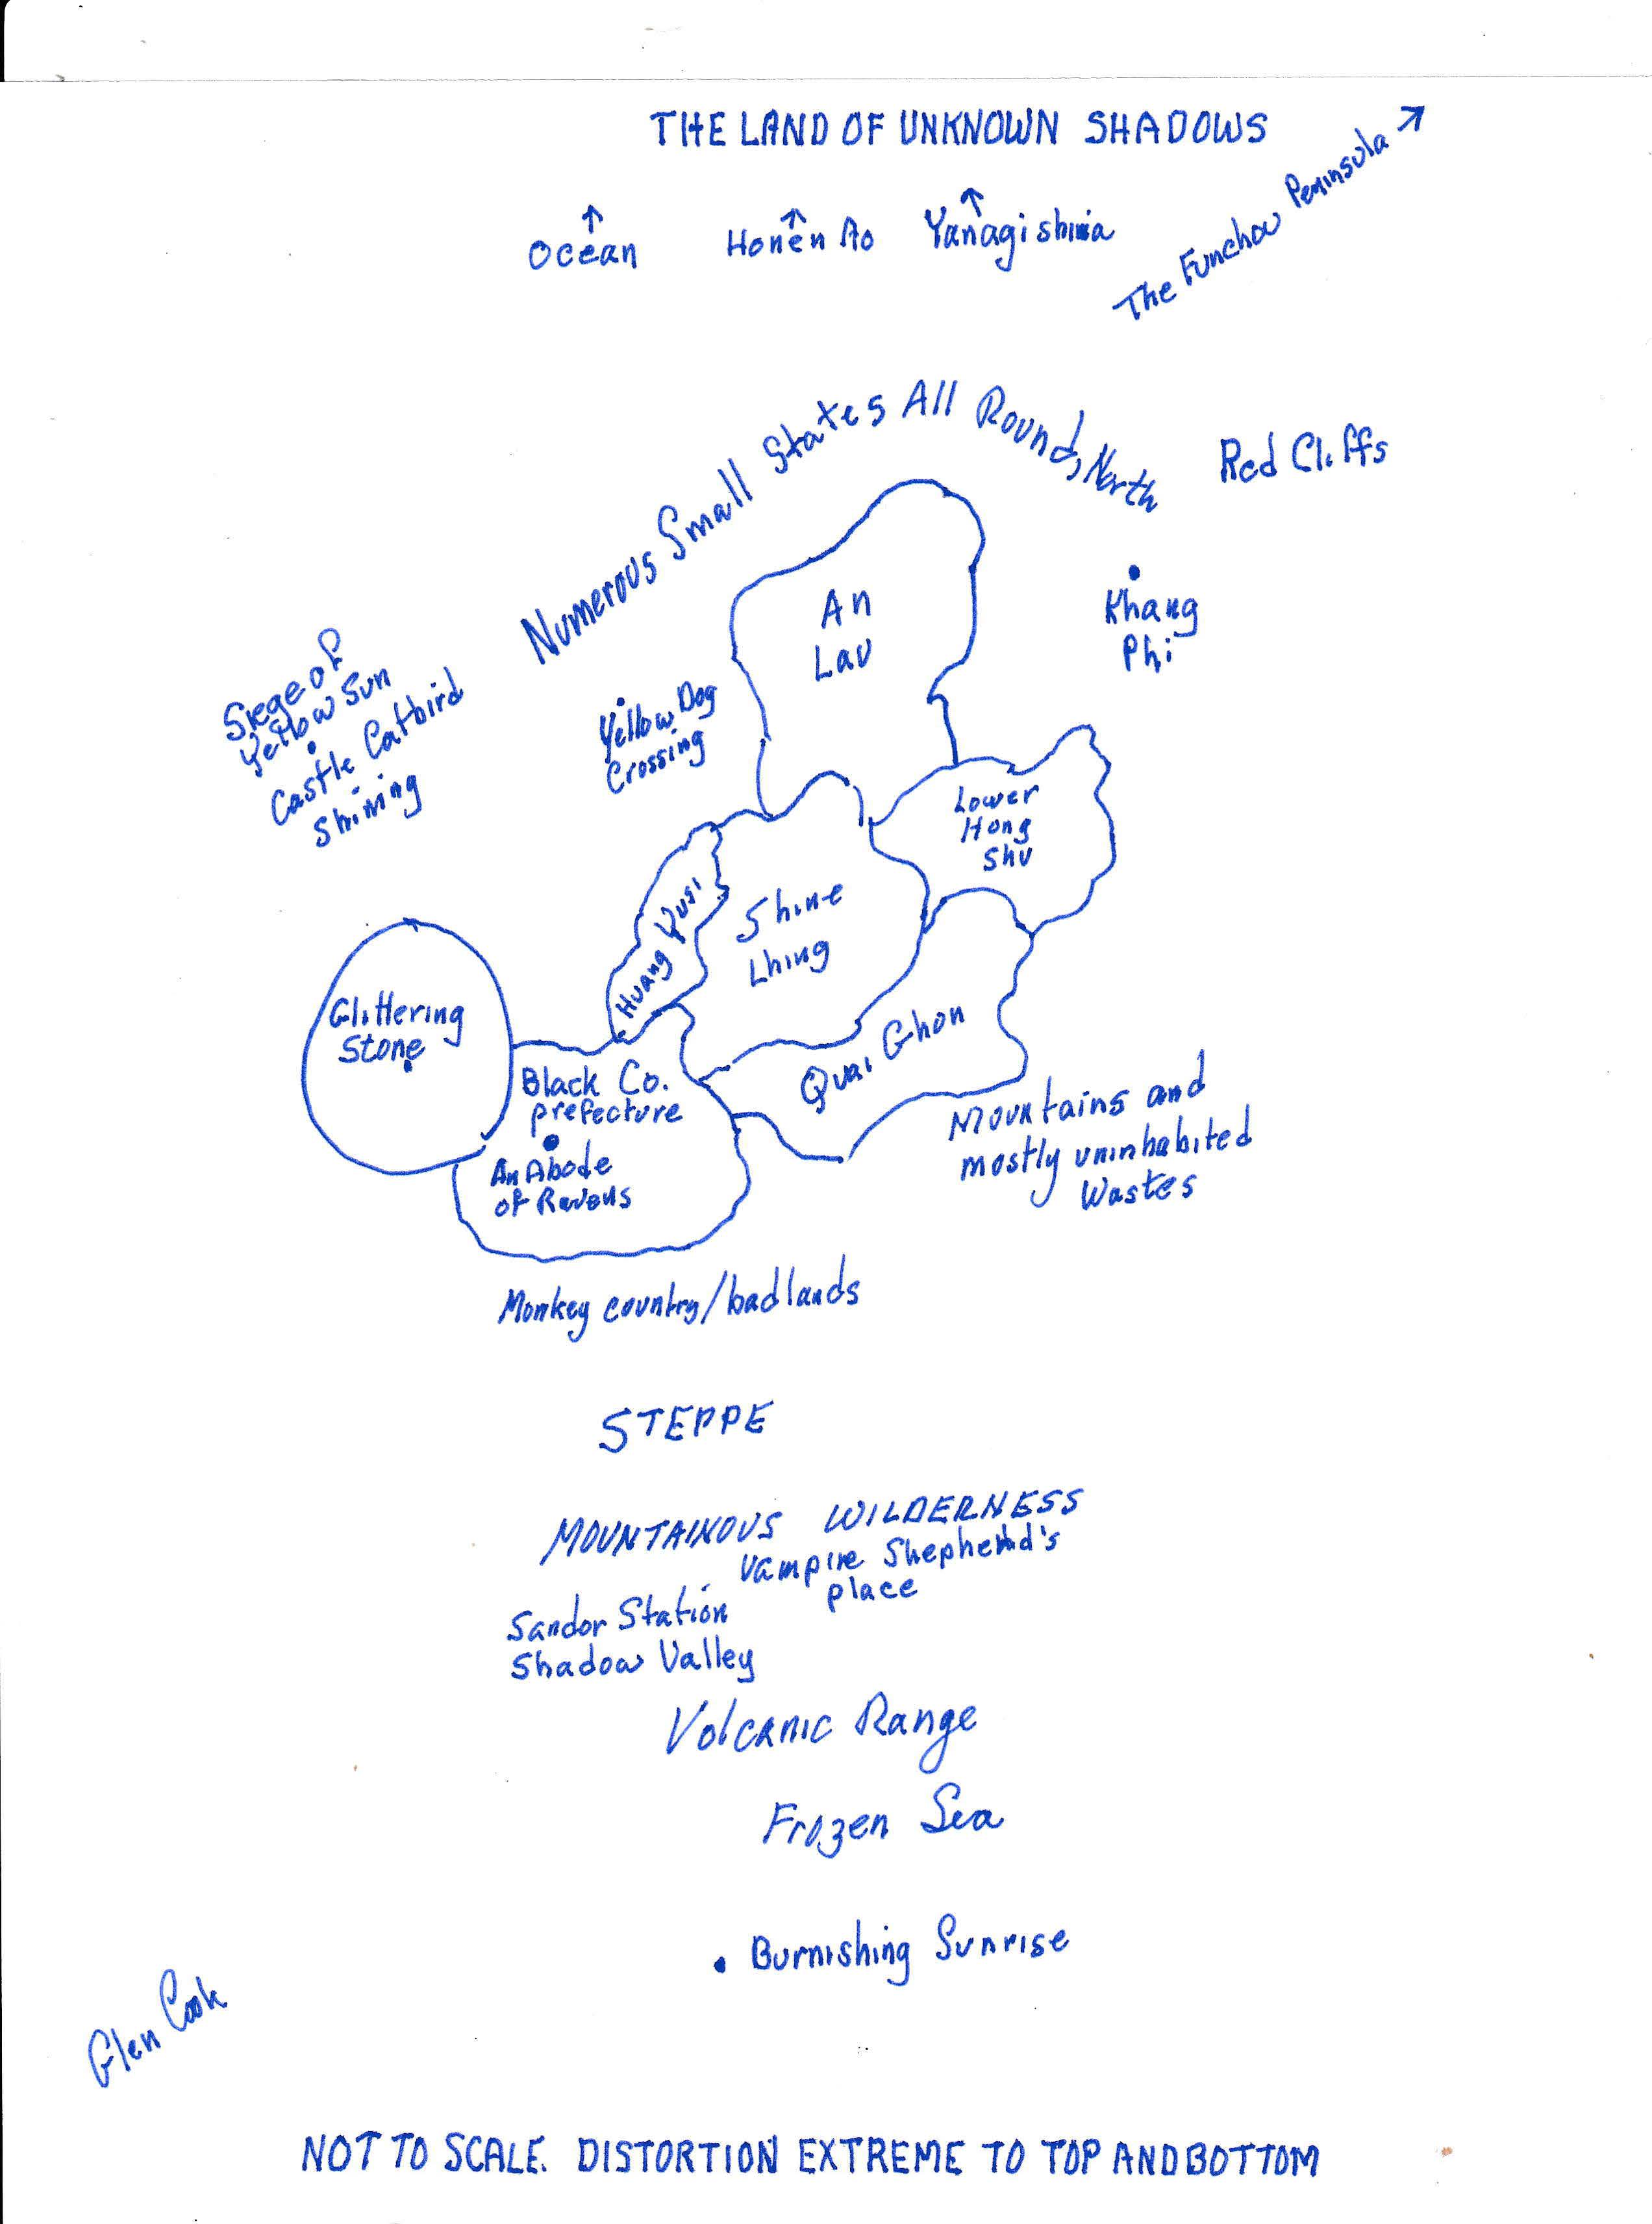 THE LAND OF UNKNOWN SHADOWS
Ocean
Honen Ao
Yanagi shima
The Funchou Peninsula
Numerous Small States All Round, North
Red Cliffs
An
Lau
Khang
Phi
Siege of
Yellow Sun
Castle Catbird
Shining
Yellow Dog
Crossing
Lower
Hong
Shu
Huang Yusi
Shine
Lhing
Glittering
Stone
Quai Ghon
Black Co.
prefecture
An Abode
of Ravens
Mountains and
mostly uninhabited
Wastes
Monkey country/badlands
STEPPE
MOUNTAINOUS WILDERNESS
Vampire Shepherd's
place
Sandor Station
Shadow Valley
Volcanic Range
Frozen Sea
Burnishing Sunrise
Glen Cook
NOT TO SCALE. DISTORTION EXTREME TO TOP AND BOTTOM